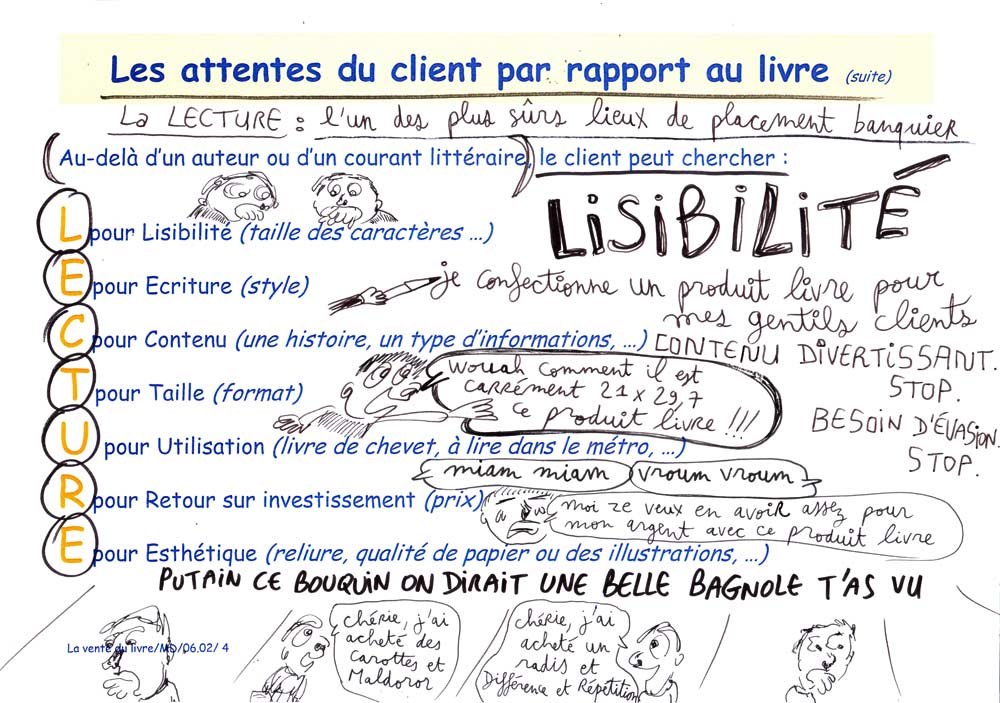 Les attentes du client par rapport au livre (suite)
La LECTURE : l'un des plus sûrs lieux de placement banquier
Au-delà d'un auteur ou d'un courant littéraire, le client peut chercher :
LiSiBiLiTÉ
L pour Lisibilité (taille des caractères ...)
E pour Ecriture (style)
je confectionne un produit livre pour
mes gentils clients
C pour Contenu (une histoire, un type d'informations, ...)
CONTENU DIVERTISSANT.
STOP.
BESOIN D'ÉVASION.
STOP.
T pour Taille (format)
Wouah comment il est
carrément 21 x 29,7
ce produit livre !!!
U pour Utilisation (livre de chevet, à lire dans le métro, ...)
miam miam
vroum vroum
R pour Retour sur investissement (prix)
moi ze veux en avoir assez pour
mon argent avec ce produit livre
E pour Esthétique (reliure, qualité de papier ou des illustrations, ...)
PUTAIN CE BOUQUIN ON DIRAIT UNE BELLE BAGNOLE T'AS VU
chérie, j'ai
acheté des
Carottes et
Maldoror
chérie, j'ai
acheté un
radis et
Différence et Répétition
La vente du livre/MD/06.02/ 4